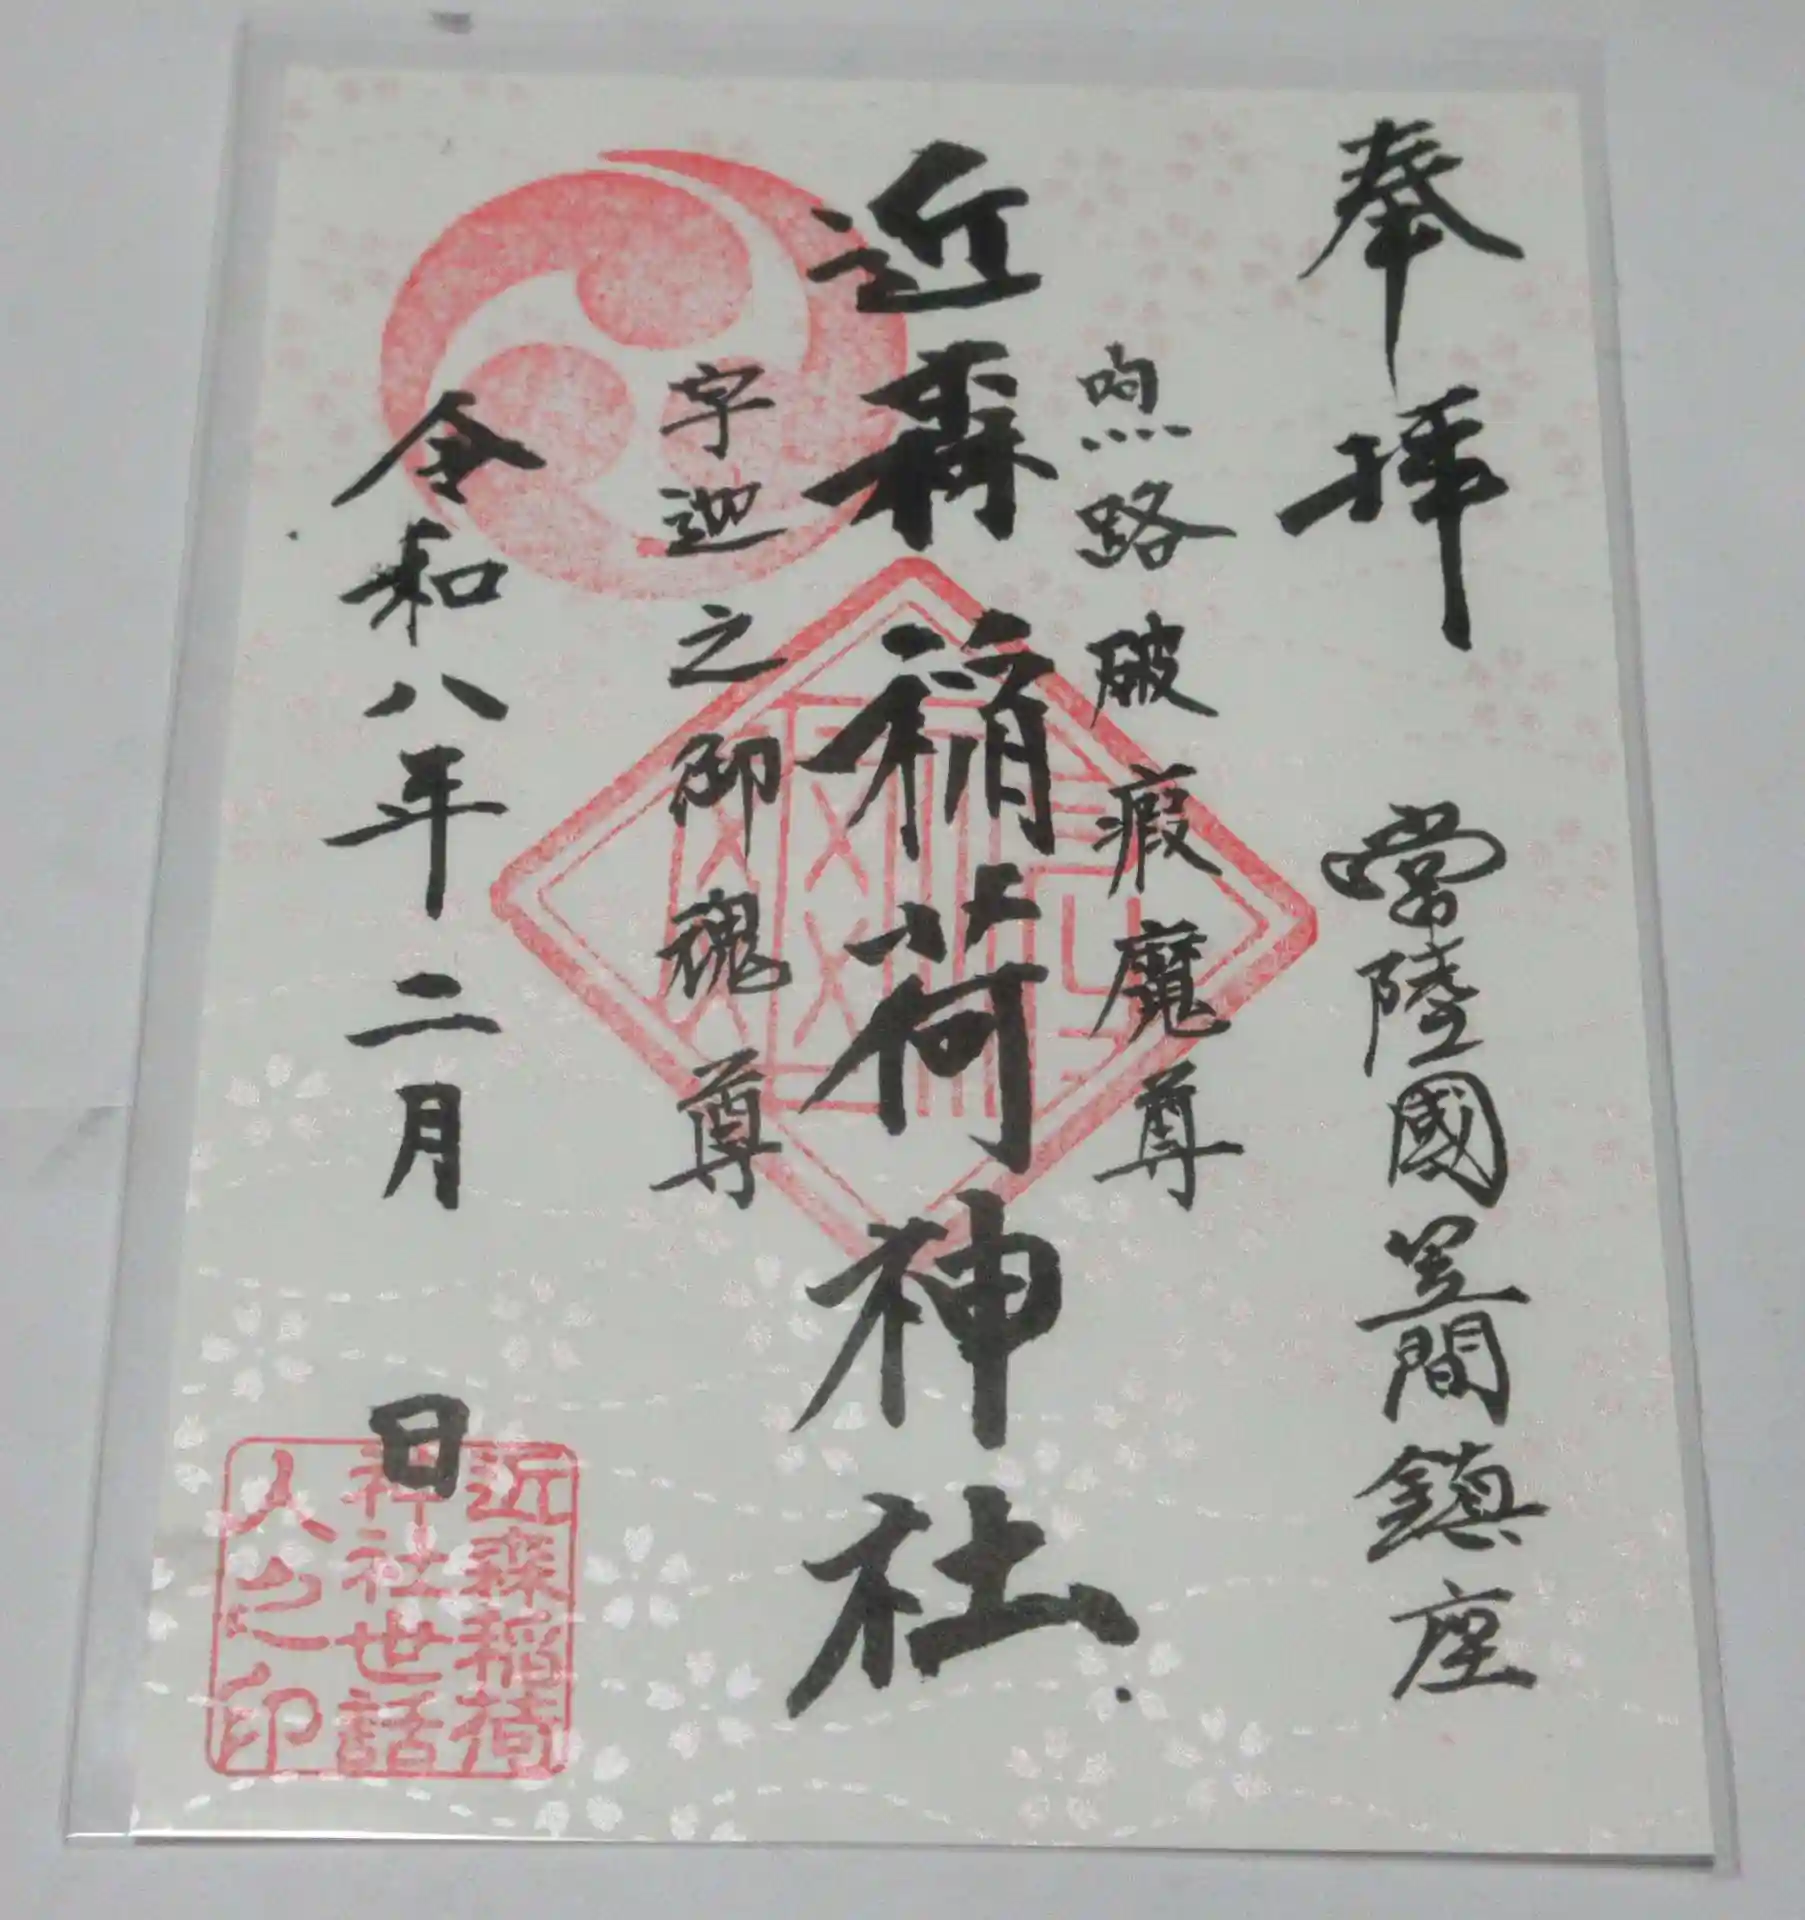 奉拝
常陸國笠間鎮座
呴灬路破瘕魔尊
近森稲荷神社
字迦之御魂尊
令和八年二月 日
近森稲荷
神社世話
人之印